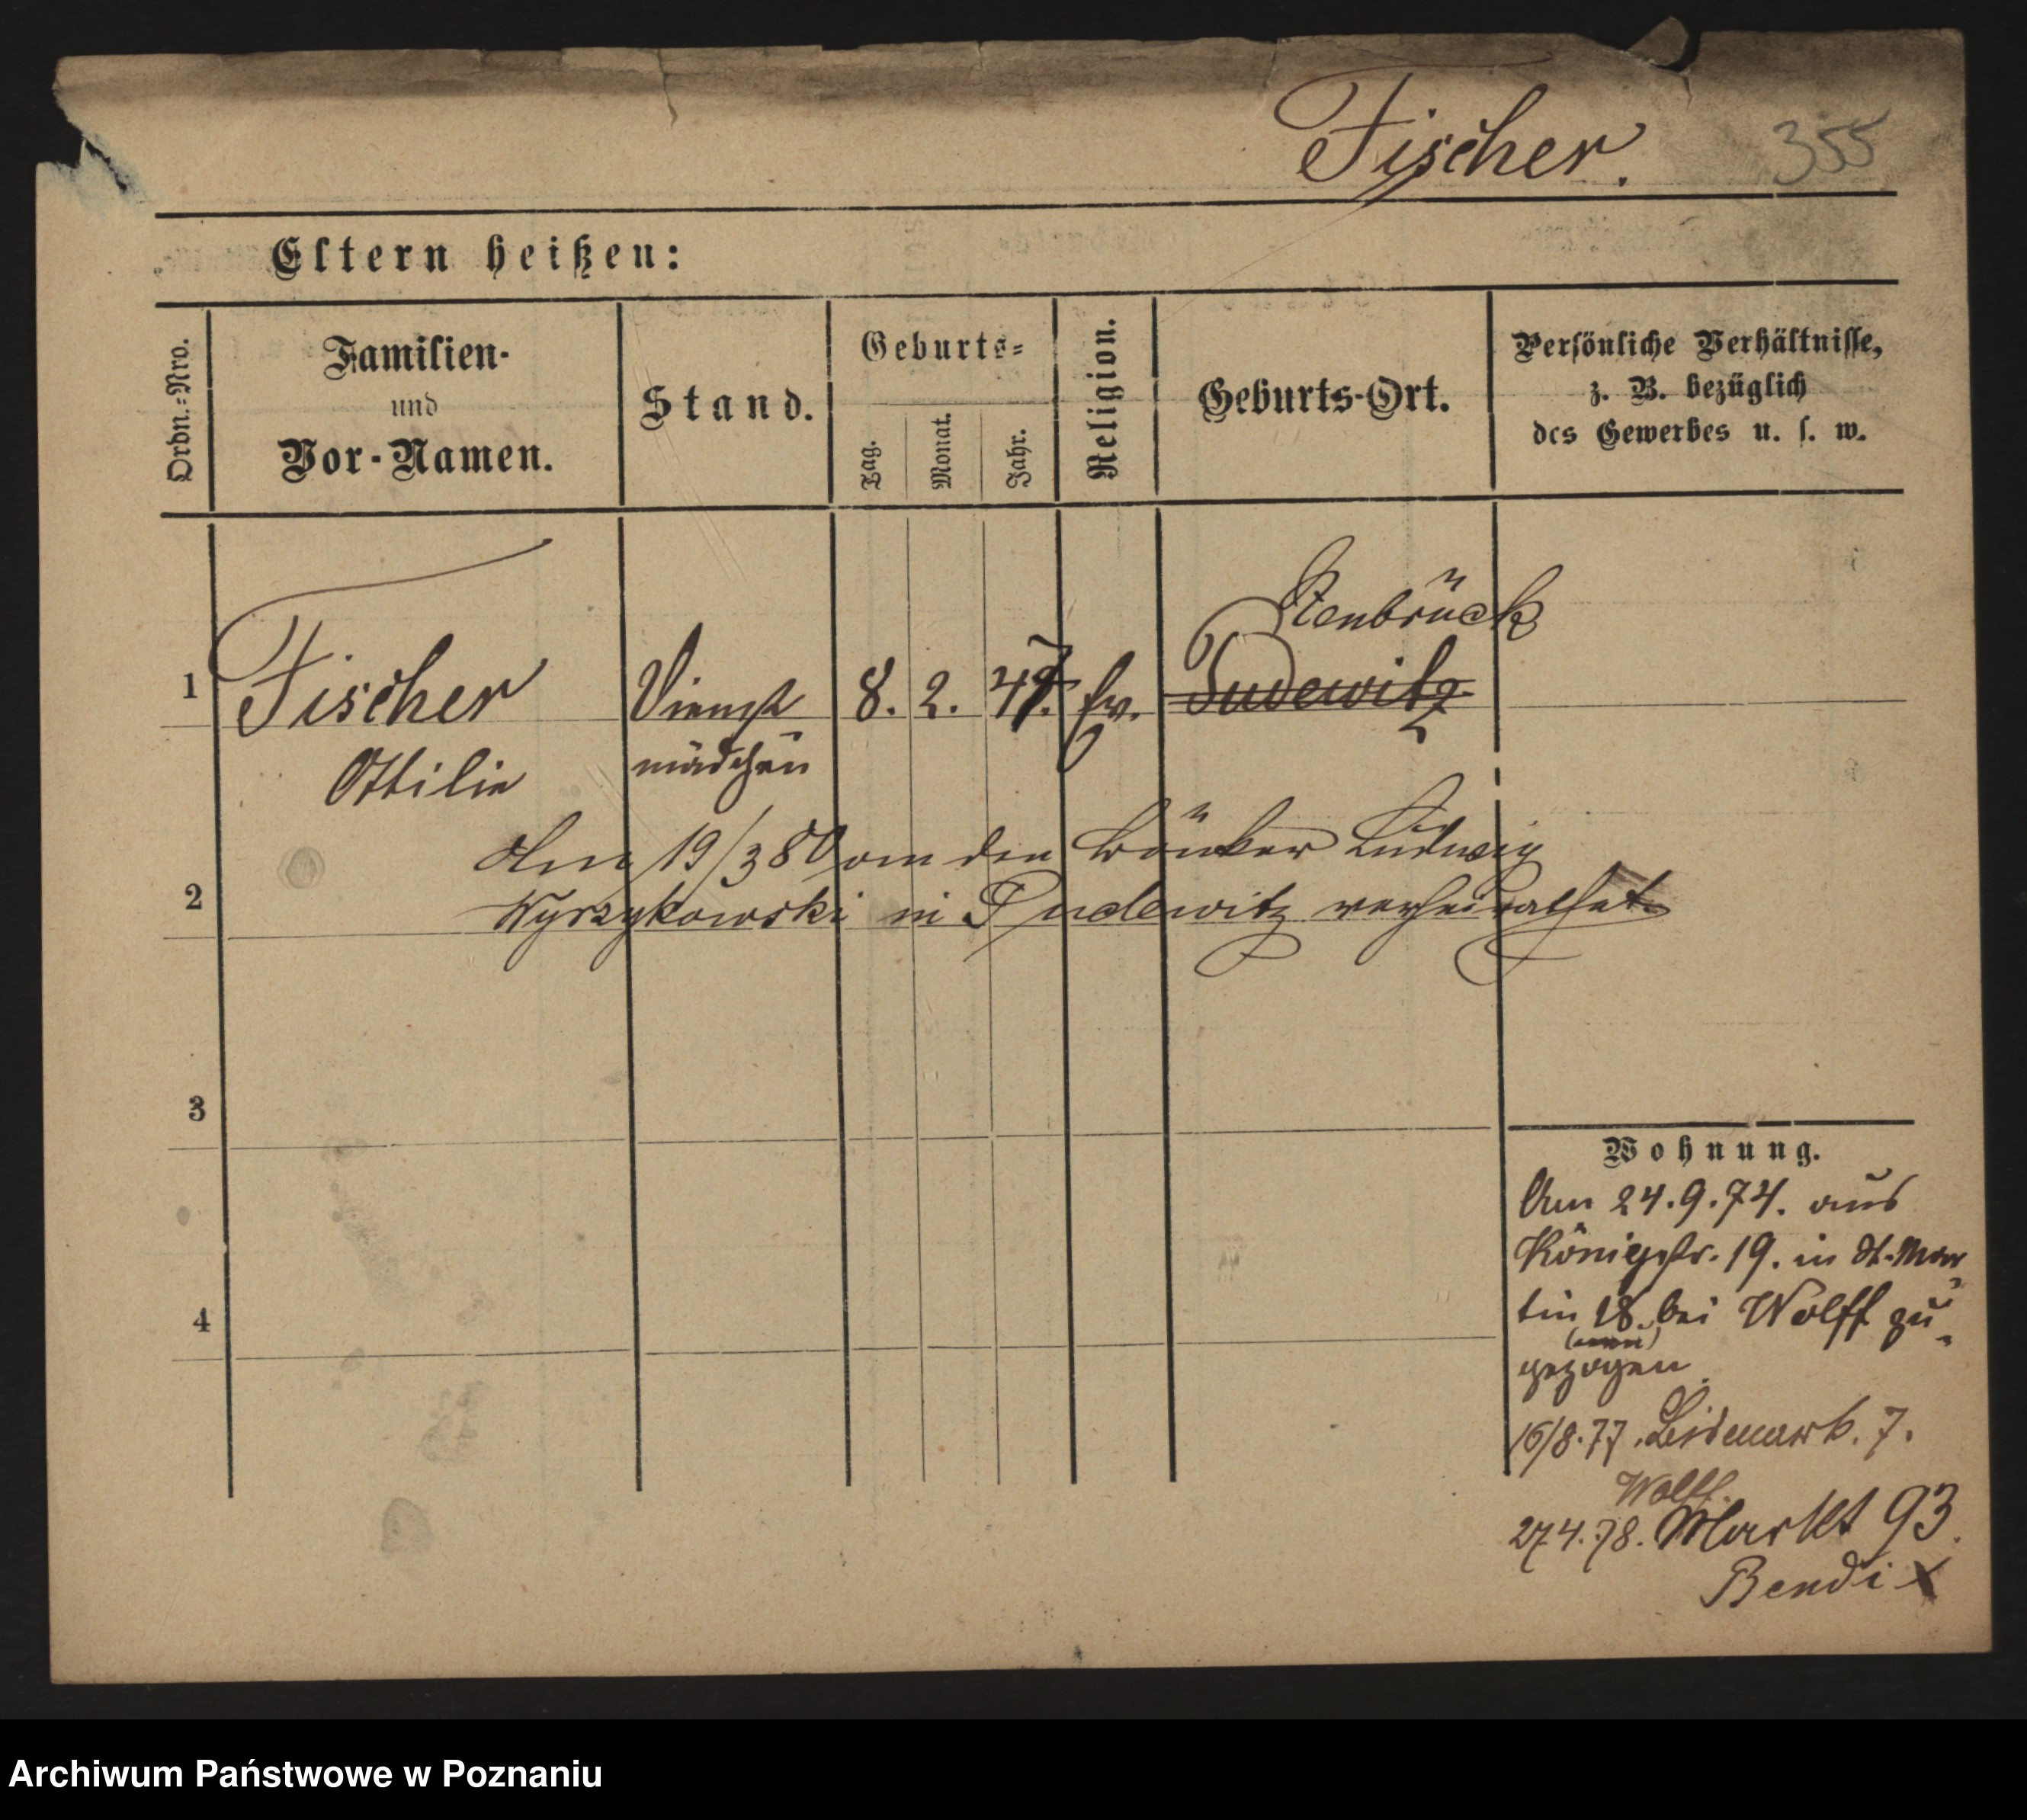 Fischer. 355
Eltern heißen:
Ordn.-Nro.
Familien-
und
Vor-Namen.
Stand.
Geburts-
Tag.
Monat.
Jahr.
Religion.
Geburts-Ort.
Persönliche Verhältnisse,
z. B. bezüglich
des Gewerbes u. s. w.
Stenbrück
1 Fischer Dienst 8. 2. 47. Ev. Pudewitz
Ottilie mädchen
Am 19/3 80 an den Ludwig
2 Wyrzykowski in Pudewitz verheirathet
3
Wohnung.
Am 24.9.74. aus
Königsstr. 19. in St. Mar
4
tin 18. bei Wolff zu-
gezogen
16/8.77. Bismark. 7.
Wolff.
27 4.78. Markt 93.
Bendix
Archiwum Państwowe w Poznaniu